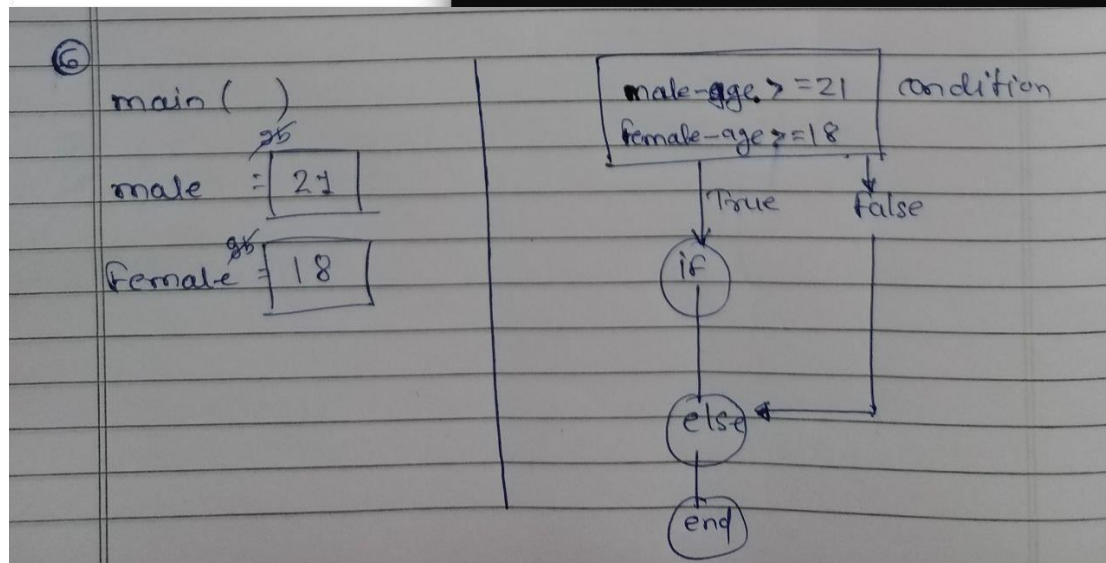 6
main ( )
male = 21
female = 18
male-age >= 21
female-age >= 18
condition
True
false
if
else
end